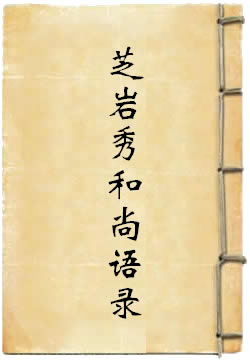 芝岩秀和尚语录